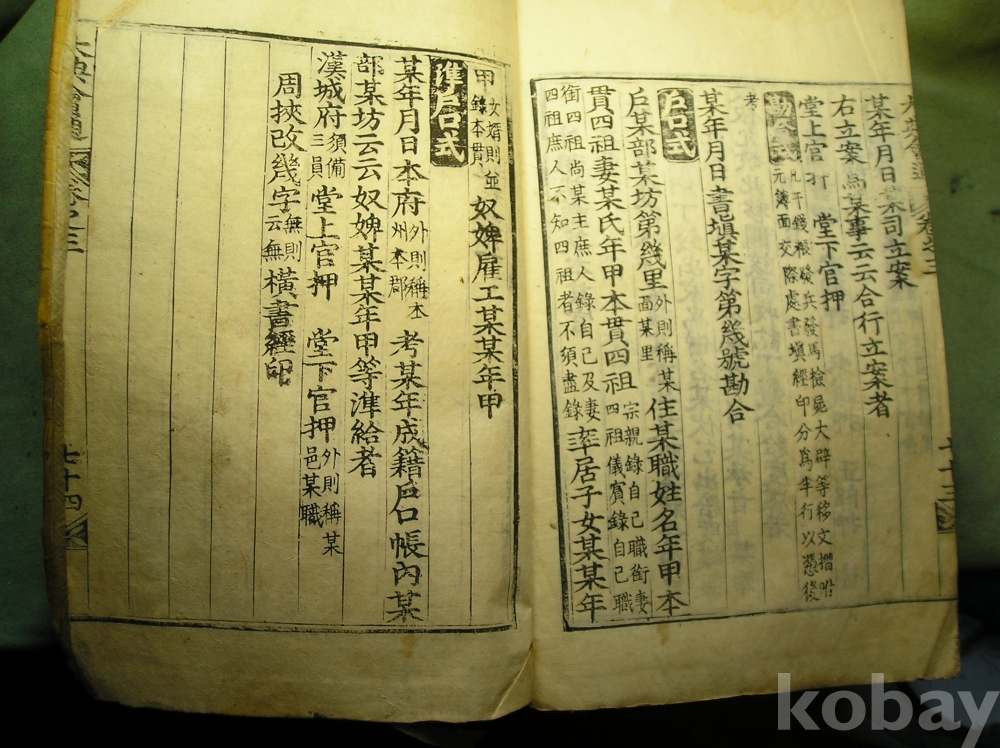 大典會通 卷之三
某年月日某司立案
右立案爲某事云云合行立案者
堂上官押 堂下官押
勘合式 凡干錢粮發兵發馬檢屍大辟等移文摺附
元簿面交際處書塡經印分爲半行以憑後
考
某年月日書塡某字第幾號勘合
戶口式
戶某部某坊第幾里 外則稱某
面某里 住某職姓名年甲本
貫四祖 宗親錄自己職銜妻
四祖儀賓錄自己職
銜四祖尚某主庶人錄自己及妻
四祖庶人不知四祖者不須盡錄
妻某氏年甲本貫四祖
率居子女某某年
七十三
甲 女壻則並
錄本貫 奴婢雇工某某年甲
準戶口式
某年月日本府 外則稱本
州本郡 考某年成籍戶口帳內某
部某坊云云奴婢某某年甲等準給者
漢城府 須備
三員 堂上官押 堂下官押 外則稱某
邑某職
周挾改幾字 無則
云無 橫書經印
大典會通 卷之三
七十四
kobay